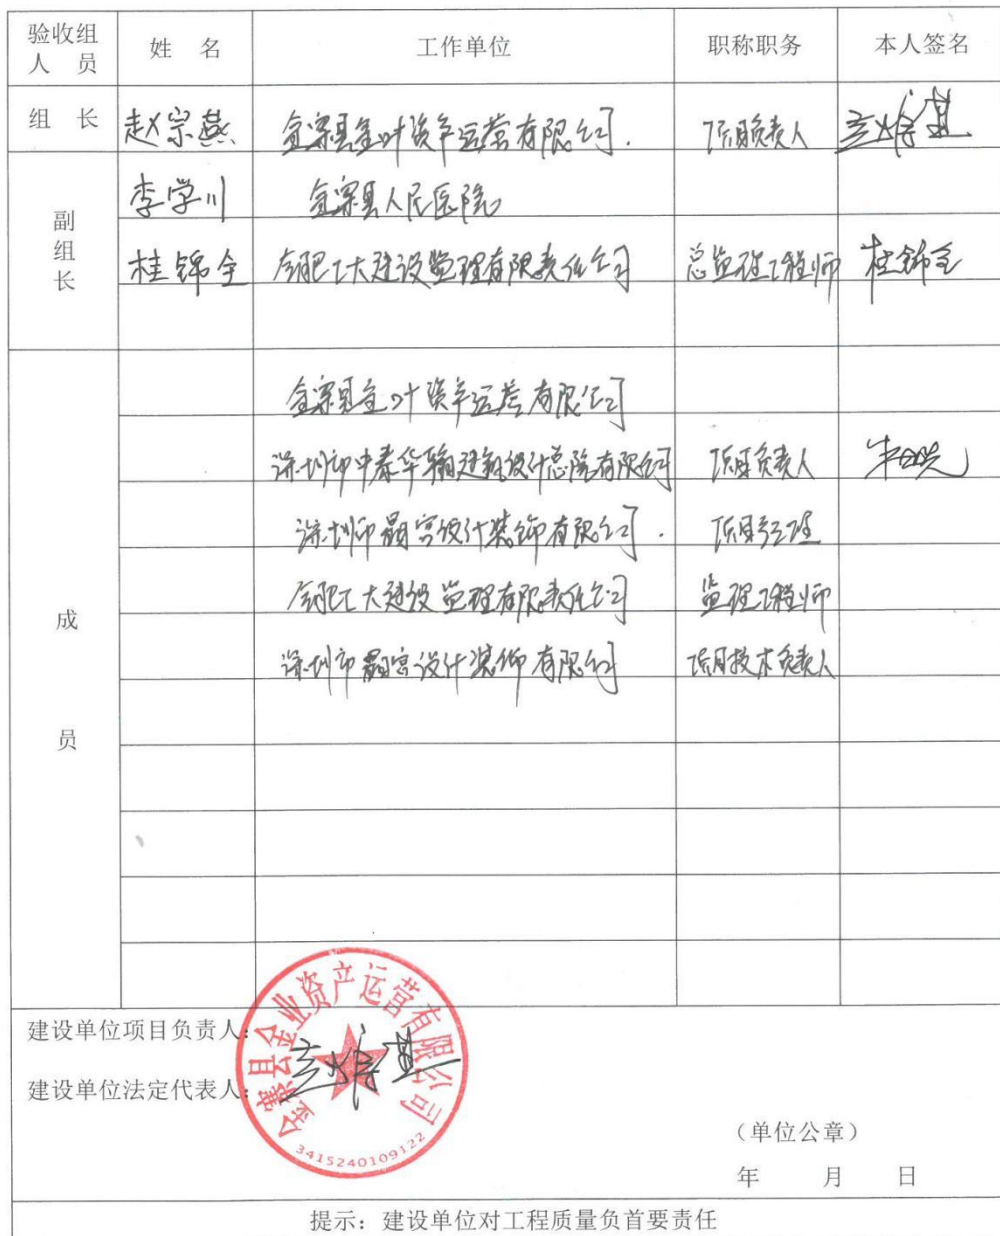 验收组人 员 姓 名 工作单位 职称职务 本人签名
组 长 赵宗燕 金寨县金叶资产运营有限公司. 项目负责人
副组长 李学川 金寨县人民医院
桂锦全 合肥工大建设监理有限责任公司 总监理工程师 桂锦全
成员
金寨县金叶资产运营有限公司
深圳市中泰华翰建筑设计总院有限公司 项目负责人
深圳市晶宫设计装饰有限公司. 项目经理
合肥工大建设监理有限责任公司 监理工程师
深圳市晶宫设计装饰有限公司 项目技术负责人
建设单位项目负责人:
建设单位法定代表人:
金寨县金业资产运营有限公司
3415240109122
（单位公章）
年 月 日
提示：建设单位对工程质量负首要责任